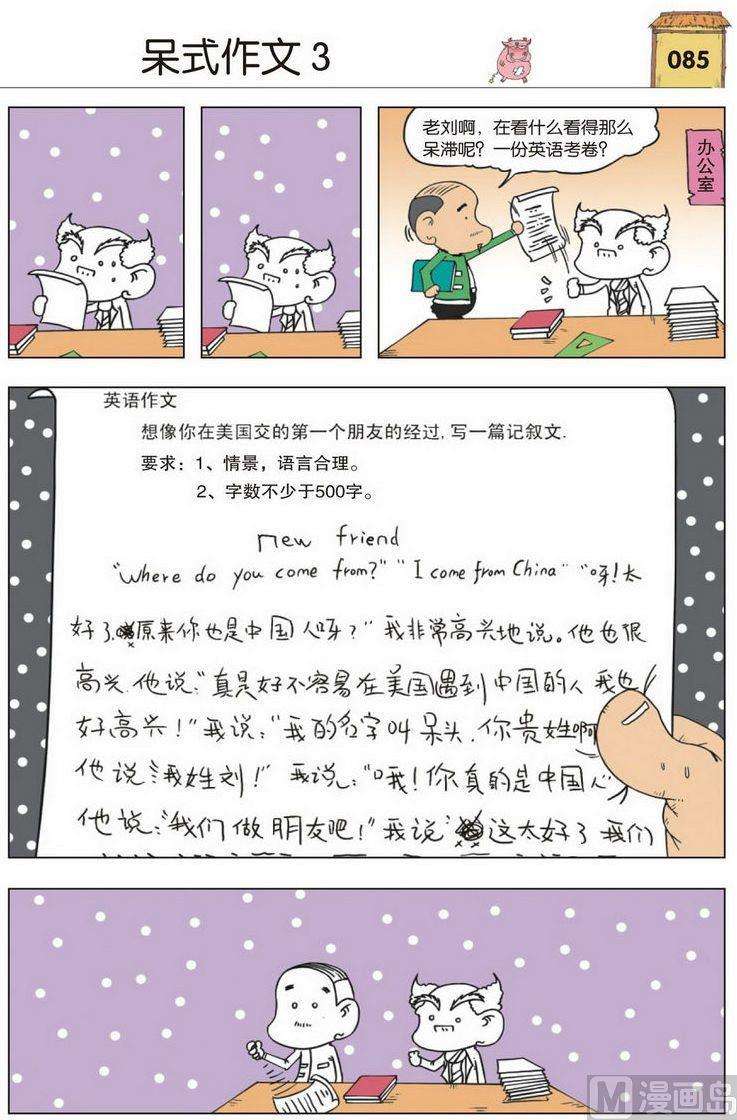 呆式作文3
085
老刘啊，在看什么看得那么
呆滞呢？一份英语考卷？
办公室
英语作文
想像你在美国交的第一个朋友的经过,写一篇记叙文.
要求：1、情景，语言合理。
2、字数不少于500字。
new friend
"Where do you come from?" "I come from China" "呀!太
好了,原来你也是中国人呀？"我非常高兴地说。他也很
高兴.他说:"真是好不容易在美国遇到中国的人 我也
好高兴！"我说:"我的名字叫呆头.你贵姓啊
他说:我姓刘！" 我说:"哦！你真的是中国人
他说:"我们做朋友吧！"我说"这太好了 我们
漫画岛